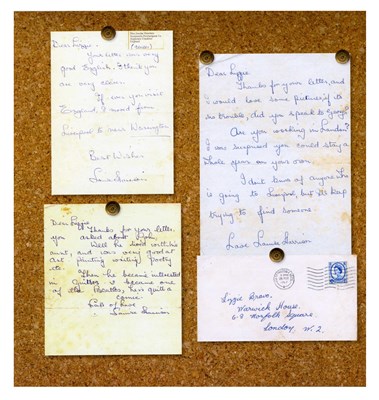 Dear Lizzie.
Your letter was very
good English, I think you
are very clever.
If you visit
England, I moved from
Liverpool to near Warrington
Best Wishes
Louise Harrison
Dear Lizzie
Thanks for your letter, and
I would love some pictures if it's
no trouble, did you speak to George
Are you working in London?
I was surprised you could stay a
whole year on your own.
I don't know of anyone who
is going to Liverpool, but I'll keep
trying to find someone.
Love Louise Harrison
Dear Lizzie
Thanks for your letter,
you asked about John,
Well he lived with his
aunt, and was very good at
art painting writing Poetry
etc.
Then he became interested
in Guitar & became one
of the Beatles, he is quite a
Lots of love
Louise Harrison
Lizzie Bravo.
Warwick House.
Norfolk Square
London W.2.